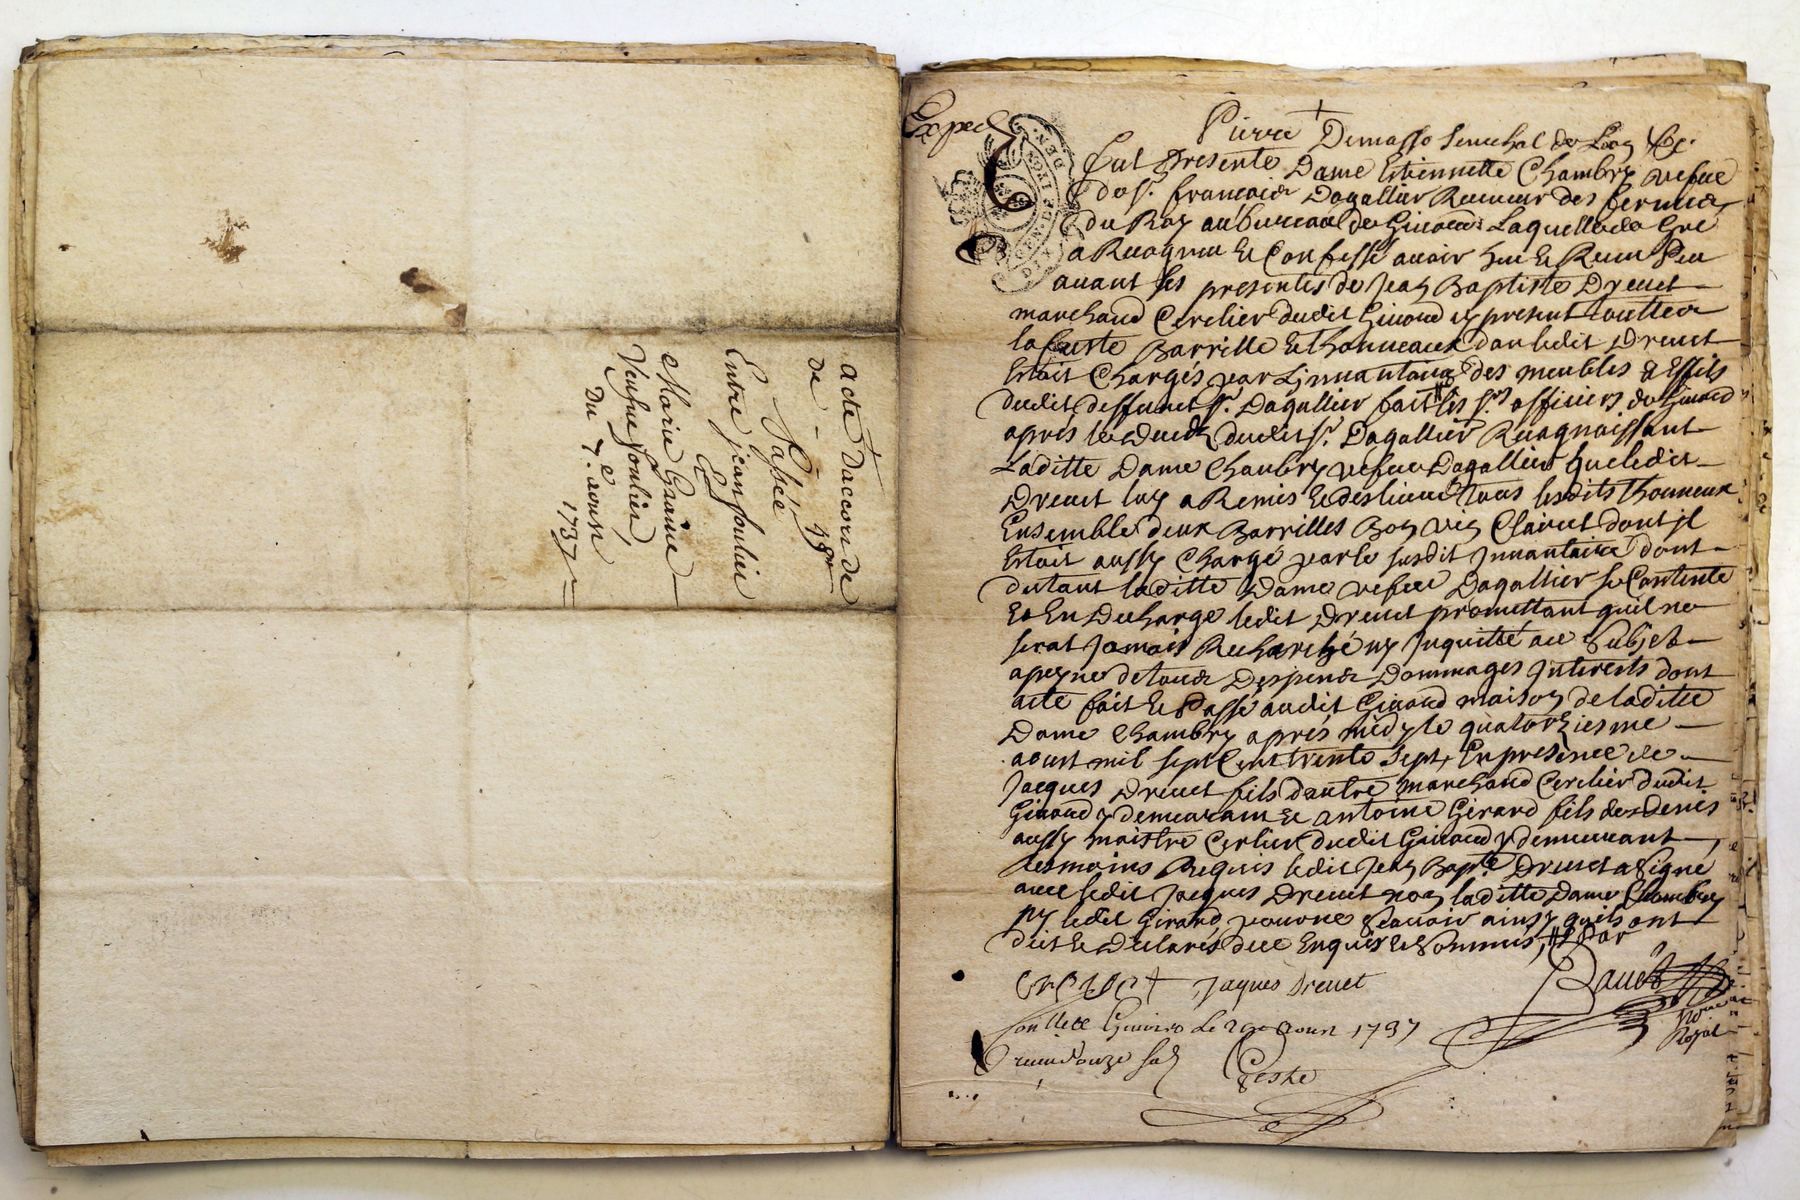 acte Daccord de
de -
Entre Jean Soulier
Et
Marie
Veufve Soulier,
Du 7.e aoust
1737
Exped
Pierre Demasso Senechal de Lyon &c.
fut presente Dame Etiennette Chambry vefue
de Sr. françois Dagallier Receueur des fermes
du Roy au bureau de Giuord Laquelle de Gré
a Recognu et Confessé auoir heu et Receu Peu
auant les presentes de Jean Baptiste Dreuet
marchand Cerclier dudit Giuord yy present touttes
la Barrille et thonneaux dont ledit Dreuet
Estoit Chargés par Linuantaire des meubles & Effets
dudit deffunct Sr. Dagallier fait les Srs officiers de Giuord
apres le Decéds dudit Sr. Dagallier Recognoissant
Laditte Dame Chambry vefue Dagallier que ledit
Dreuet luy a Remis et deslieuré tous lesdits thonneaux
Ensemble deux Barrilles Bon vin Clairet dont jl
Estoit aussy Chargé par le susdit Jnuantaire dont
du tout laditte Dame vefue Dagallier se Contente
Et En Decharge ledit Dreuet promettant quil ne
serat Jamais Recherché ny Jnquitté au Subjet
a peyne de tous Despens Dommages Interests dont
acte fait et Passé audit Giuord maison de laditte
Dame Chambry après midy le quatorziesme
aoust mil sept Cent trente sept, En presence de
Jacques Dreuet fils dautre marchand Cerclier dudit
Giuord y demeurant et antoine Girard fils de Denis
aussy maistre Cerlier dudit Giuord y demeurant,
tesmoins Requis ledit Jean Bapte. Dreuet a Signé
auec ledit Jacques Dreuet non laditte Dame Chambry
ny ledit Girard, pour ne Scauoir ainsy quils ont
dit et Declarés de ce Enquis et Sommés, # Par
Jaques Dreuet
Nore
Royal
Giuors Le 29e Aoust 1737
Receu douze sols